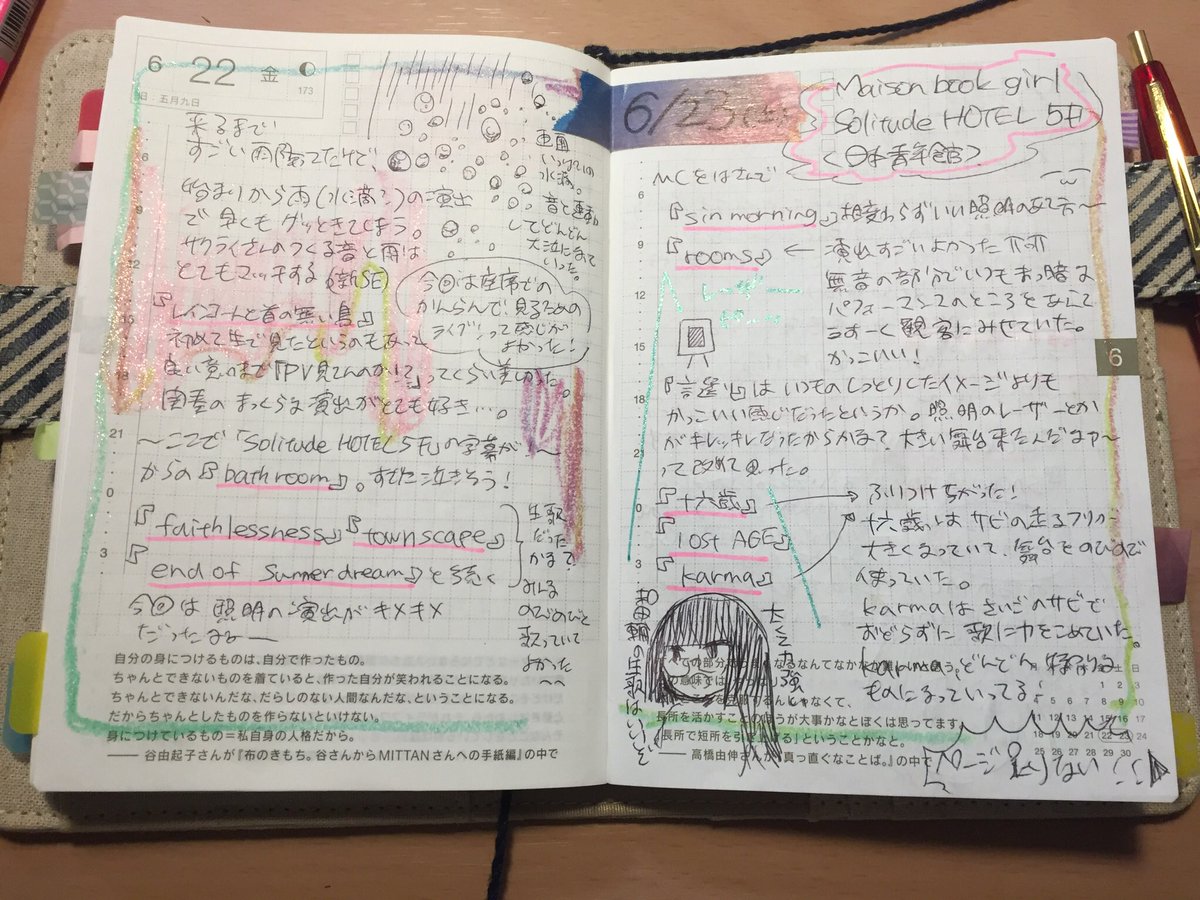 6
22
金
173
五月九日
来るまで
すごい雨降ってたけど、
始まりから雨(水滴?)の演出
で早くもグッときてしまう。
サクライさんのつくる音と雨は
とてもマッチする(新SE)
画面
いっぱいの
水滴。
音と連動
してどんどん
大泣になって
いった。
『レインコートと首の無い鳥』
初めて生で見たというのもあって
良い意味で『PV見てんのか!?』ってくらい美しかった。
間奏のまっくらな演出がとても好き…。
今回は座席での
かんらんで、見るための
ライブ!って感じが
よかった!
〜ここで「Solitude HOTEL 5F」の字幕が〜
からの『bathroom』。すでに泣きそう!
『faithlessness』『townscape』
『end of Summer dream』と続く
今回は照明の演出がキメキメ
だったなぁー
生歌
だった
かな?
みんな
のびのびと
歌っていて
よかった
自分の身につけるものは、自分で作ったもの。
ちゃんとできないものを着ていると、作った自分が笑われることになる。
ちゃんとできないんだな、だらしのない人間なんだな、ということになる。
だからちゃんとしたものを作らないといけない。
身につけているもの=私自身の人格だから。
―― 谷由起子さんが『布のきもち。谷さんからMITTANさんへの手紙編』の中で
6/23(土)
Maison book girl
Solitude HOTEL 5F
<日本青年館>
MCをはさんで
『sin morning』相変わらずいい照明のあて方〜
『rooms』← 演出すごいよかった
レーザー
無音の部分でいつもまっ暗な
パフォーマンスのところをあえて
うすーく観客にみせていた。
かっこいい!
『言選り』はいつものしっとりしたイメージよりも
かっこいい感じだったというか。照明のレーザーとか
がキレッキレだったからかな?大きい舞台来たんだなァ〜
って改めて思った。
『十六歳』
『lost AGE』
『karma』
ふりつけちがった!
十六歳はサビの走るフリが
大きくなっていて、舞台をのびのび
使っていた。
karmaはさいごのサビで
おどらずに歌に力をこめていた。
karma、どんどん特別な
ものになっていってる。
和田輪の生歌はいいぞ
太く力強
長所を活かすことのほうが大事かなとぼくは思ってます
「長所で短所を引き上げる」ということかなと。
―― 高橋由伸さんが『真っ直ぐなことば。』の中で
ページ足りない
6